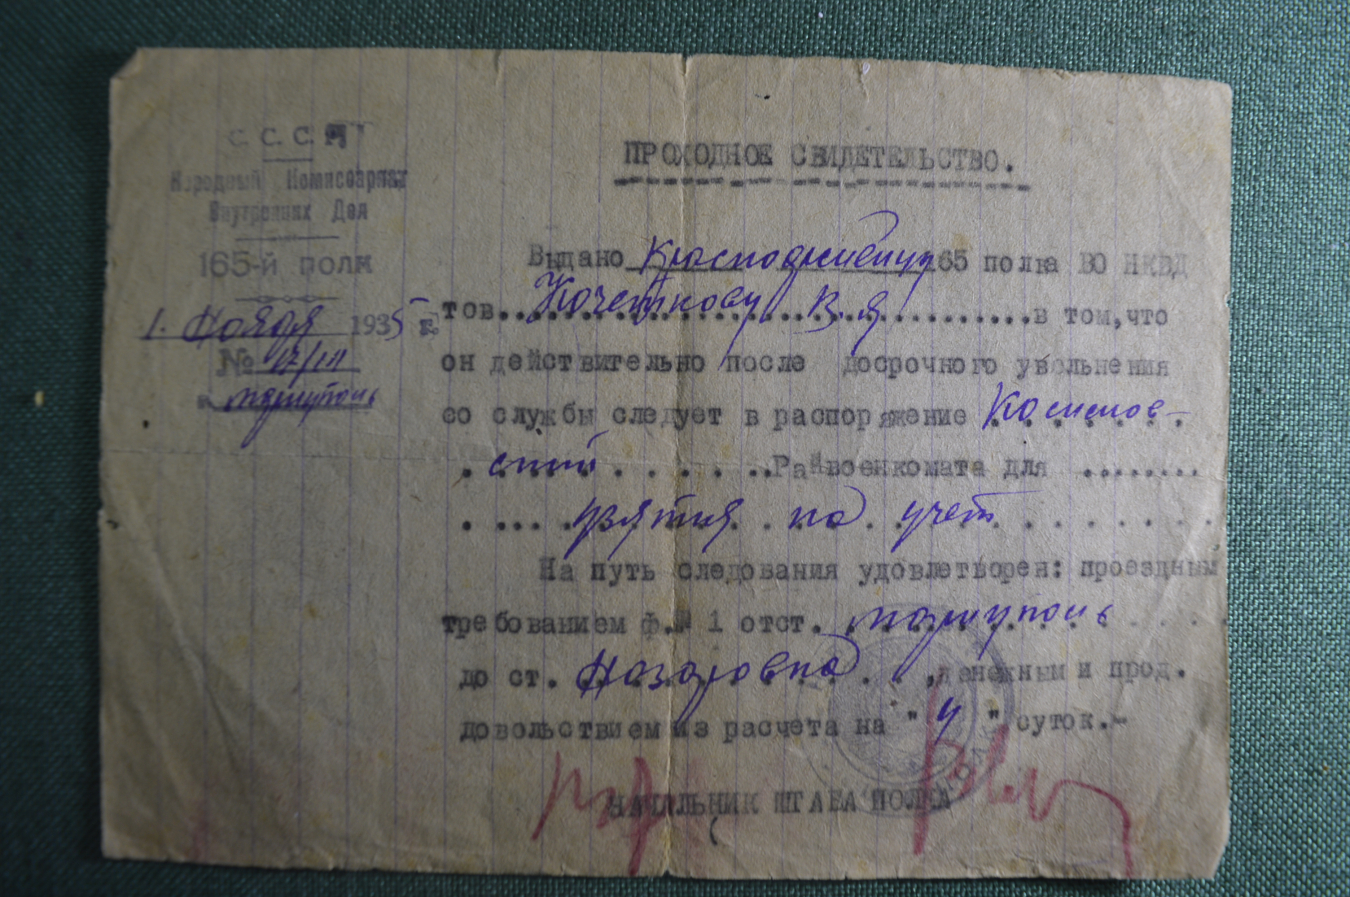 С. С. С. Р.
Народный Комиссариат
Внутренних Дел
165-й полк
1. Ноября 1935 г.
№
в Мариуполь
ПРОХОДНОЕ СВИДЕТЕЛЬСТВО.
Выдано Красноармейцу 165 полка ВО НКВД
тов. Кочеткову В. Я. в том, что
он действительно после досрочного увольнения
со службы следует в распоряжение Касимов-
ский Райвоенкомата для
взятия на учет
На путь следования удовлетворен: проездным
требованием ф.№ 1 отст. Мариуполь
до ст. Назаровка, денежным и прод.
довольствием из расчета на "4" суток.-
НАЧАЛЬНИК ШТАБА ПОЛКА